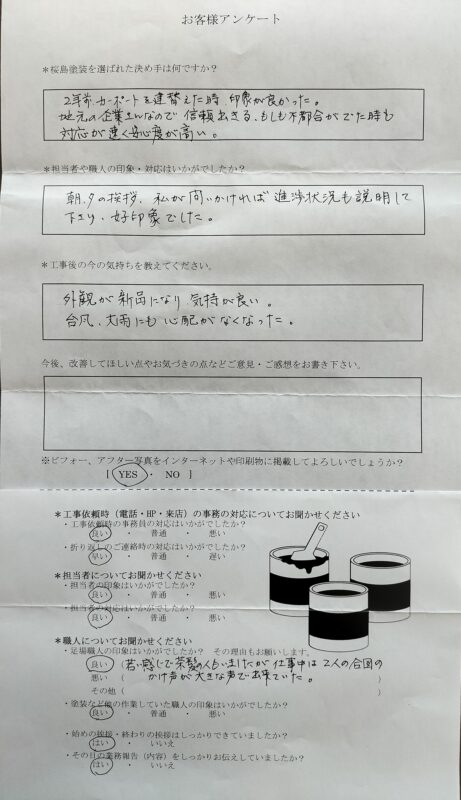 お客様アンケート
＊桜島塗装を選ばれた決め手は何ですか？
2年前、カーポートを建替えた時、印象が良かった。
地元の企業さんなので信頼出きる、もしも不都合がでた時も
対応が速く安心度が高い。
＊担当者や職人の印象・対応はいかがでしたか？
朝、夕の挨拶、私が問いかければ進渉状況も説明して
下さり、好印象でした。
＊工事後の今の気持ちを教えてください。
外観が新品になり気持が良い。
台風、大雨にも心配がなくなった。
今後、改善してほしい点やお気づきの点などご意見・ご感想をお書き下さい。
※ビフォー、アフター写真をインターネットや印刷物に掲載してよろしいでしょうか？
[ YES ・ NO ]
＊工事依頼時（電話・HP・来店）の事務の対応についてお聞かせください
・工事依頼時の事務員の対応はいかがでしたか？
良い ・ 普通 ・ 悪い
・折り返しのご連絡時の対応はいかがでしたか？
早い ・ 普通 ・ 遅い
＊担当者についてお聞かせください
・担当者の印象はいかがでしたか？
良い ・ 普通 ・ 悪い
・担当者の対応はいかがでしたか？
良い ・ 普通 ・ 悪い
＊職人についてお聞かせください
・足場職人の印象はいかがでしたか？ その理由もお願いします。
良い （若い感じで茶髪の人もいましたが仕事中は2人の合図の
悪い （ かけ声が大きな声で出来ていた。 ）
その他（ ）
・塗装など他の作業していた職人の印象はいかがでしたか？
良い ・ 普通 ・ 悪い
・始めの挨拶・終わりの挨拶はしっかりできていましたか？
はい ・ いいえ
・その日の業務報告（内容）をしっかりお伝えしていましたか？
はい ・ いいえ